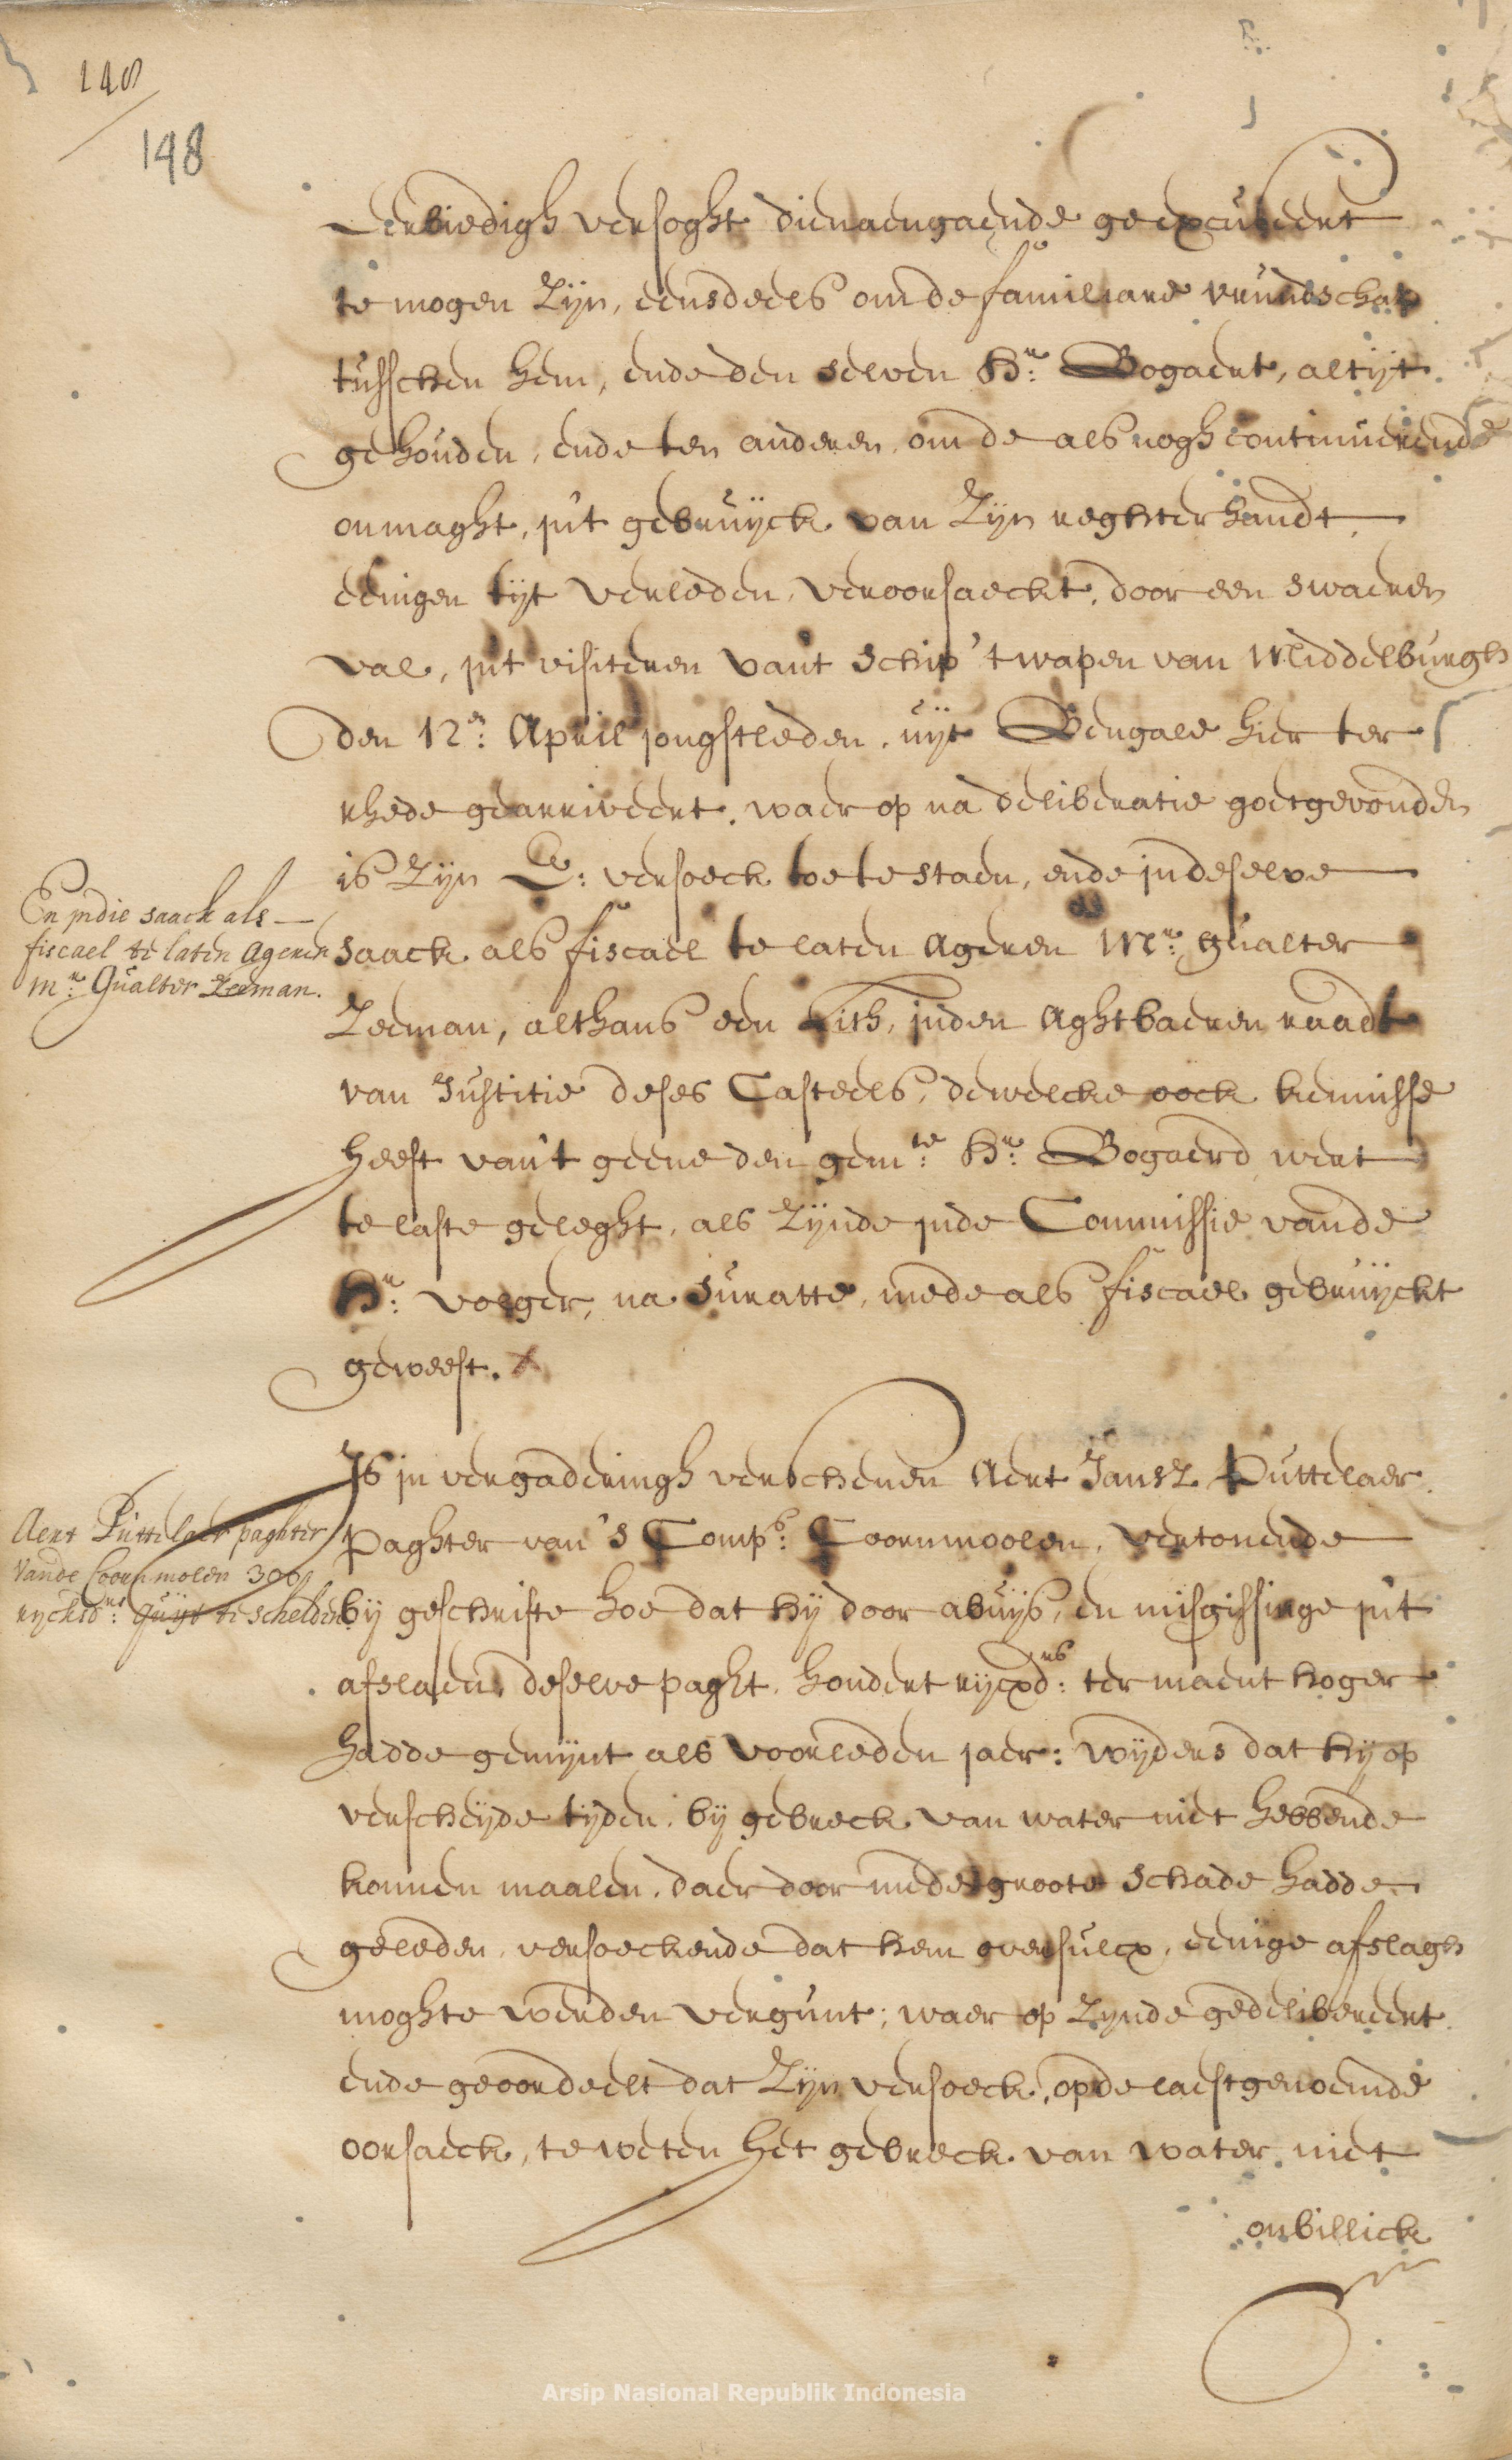 148
148
Eerbiedigh versoght dienaengaende geexcuseert
te mogen zijn, eensdeels om de familiare vrundschap
tusschen hem, ende den selven Hr: Bogaert, altijt
gehouden, ende ten anderen, om de als nogh continuerende
onmaght, in't gebruijck van zijn reghterhandt,
eenigen tijt verleden, veroorsaeckt, door een swaeren
val, int visiteren vant schip 't wapen van Middelburgh
den 12en: April jongstleden, uijt Bengale hier ter
rhede gearriveert, waer op na deliberatie goetgevonden
is zijn E: versoeck toe te staen, ende in deselve
saack als fiscael te laten ageren Mr: Gualter
Zeeman, althans een Lith, inden aghtbaeren raadt
van Justitie deses Casteels, dewelcke oock kennisse
heeft van't geene den gemte: Hr: Bogaerd wert
te laste geleght, als zijnde inde Commissie vande
Hr: Volger, na Suratte, mede als fiscael gebruijckt
geweest.
En indie saack als
fiscael te laten ageren
Mr: Gualter Zeeman.
Is in vergaderingh verschenen Aert Jansz Puttelaer,
Paghter van 's Comps: Coornmoolen, vertonende
bij geschrifte hoe dat hij door abuijs, en misgissinge in't
afslaen, deselve paght, hondert rijcxdrs: ter maent hoger
hadde gemijnt als voorleden jaer: wijders dat hij op
verscheijde tijden, bij gebreck van water niet hebbende
konnen maalen, daer door mede groote schade hadde
geleden, versoeckende dat hem oversulcx, eenige afslagh
moghte werden vergunt; waer op zijnde gedelibereert
ende geoordeelt dat zijn versoeck, op de laestgenoemde
oorsaeck, te weten het gebreck van water niet
onbillick
Aert Puttelaer paghter
vande Coornmolen 300
ryckdrs: quijt te schelden
Arsip Nasional Republik Indonesia